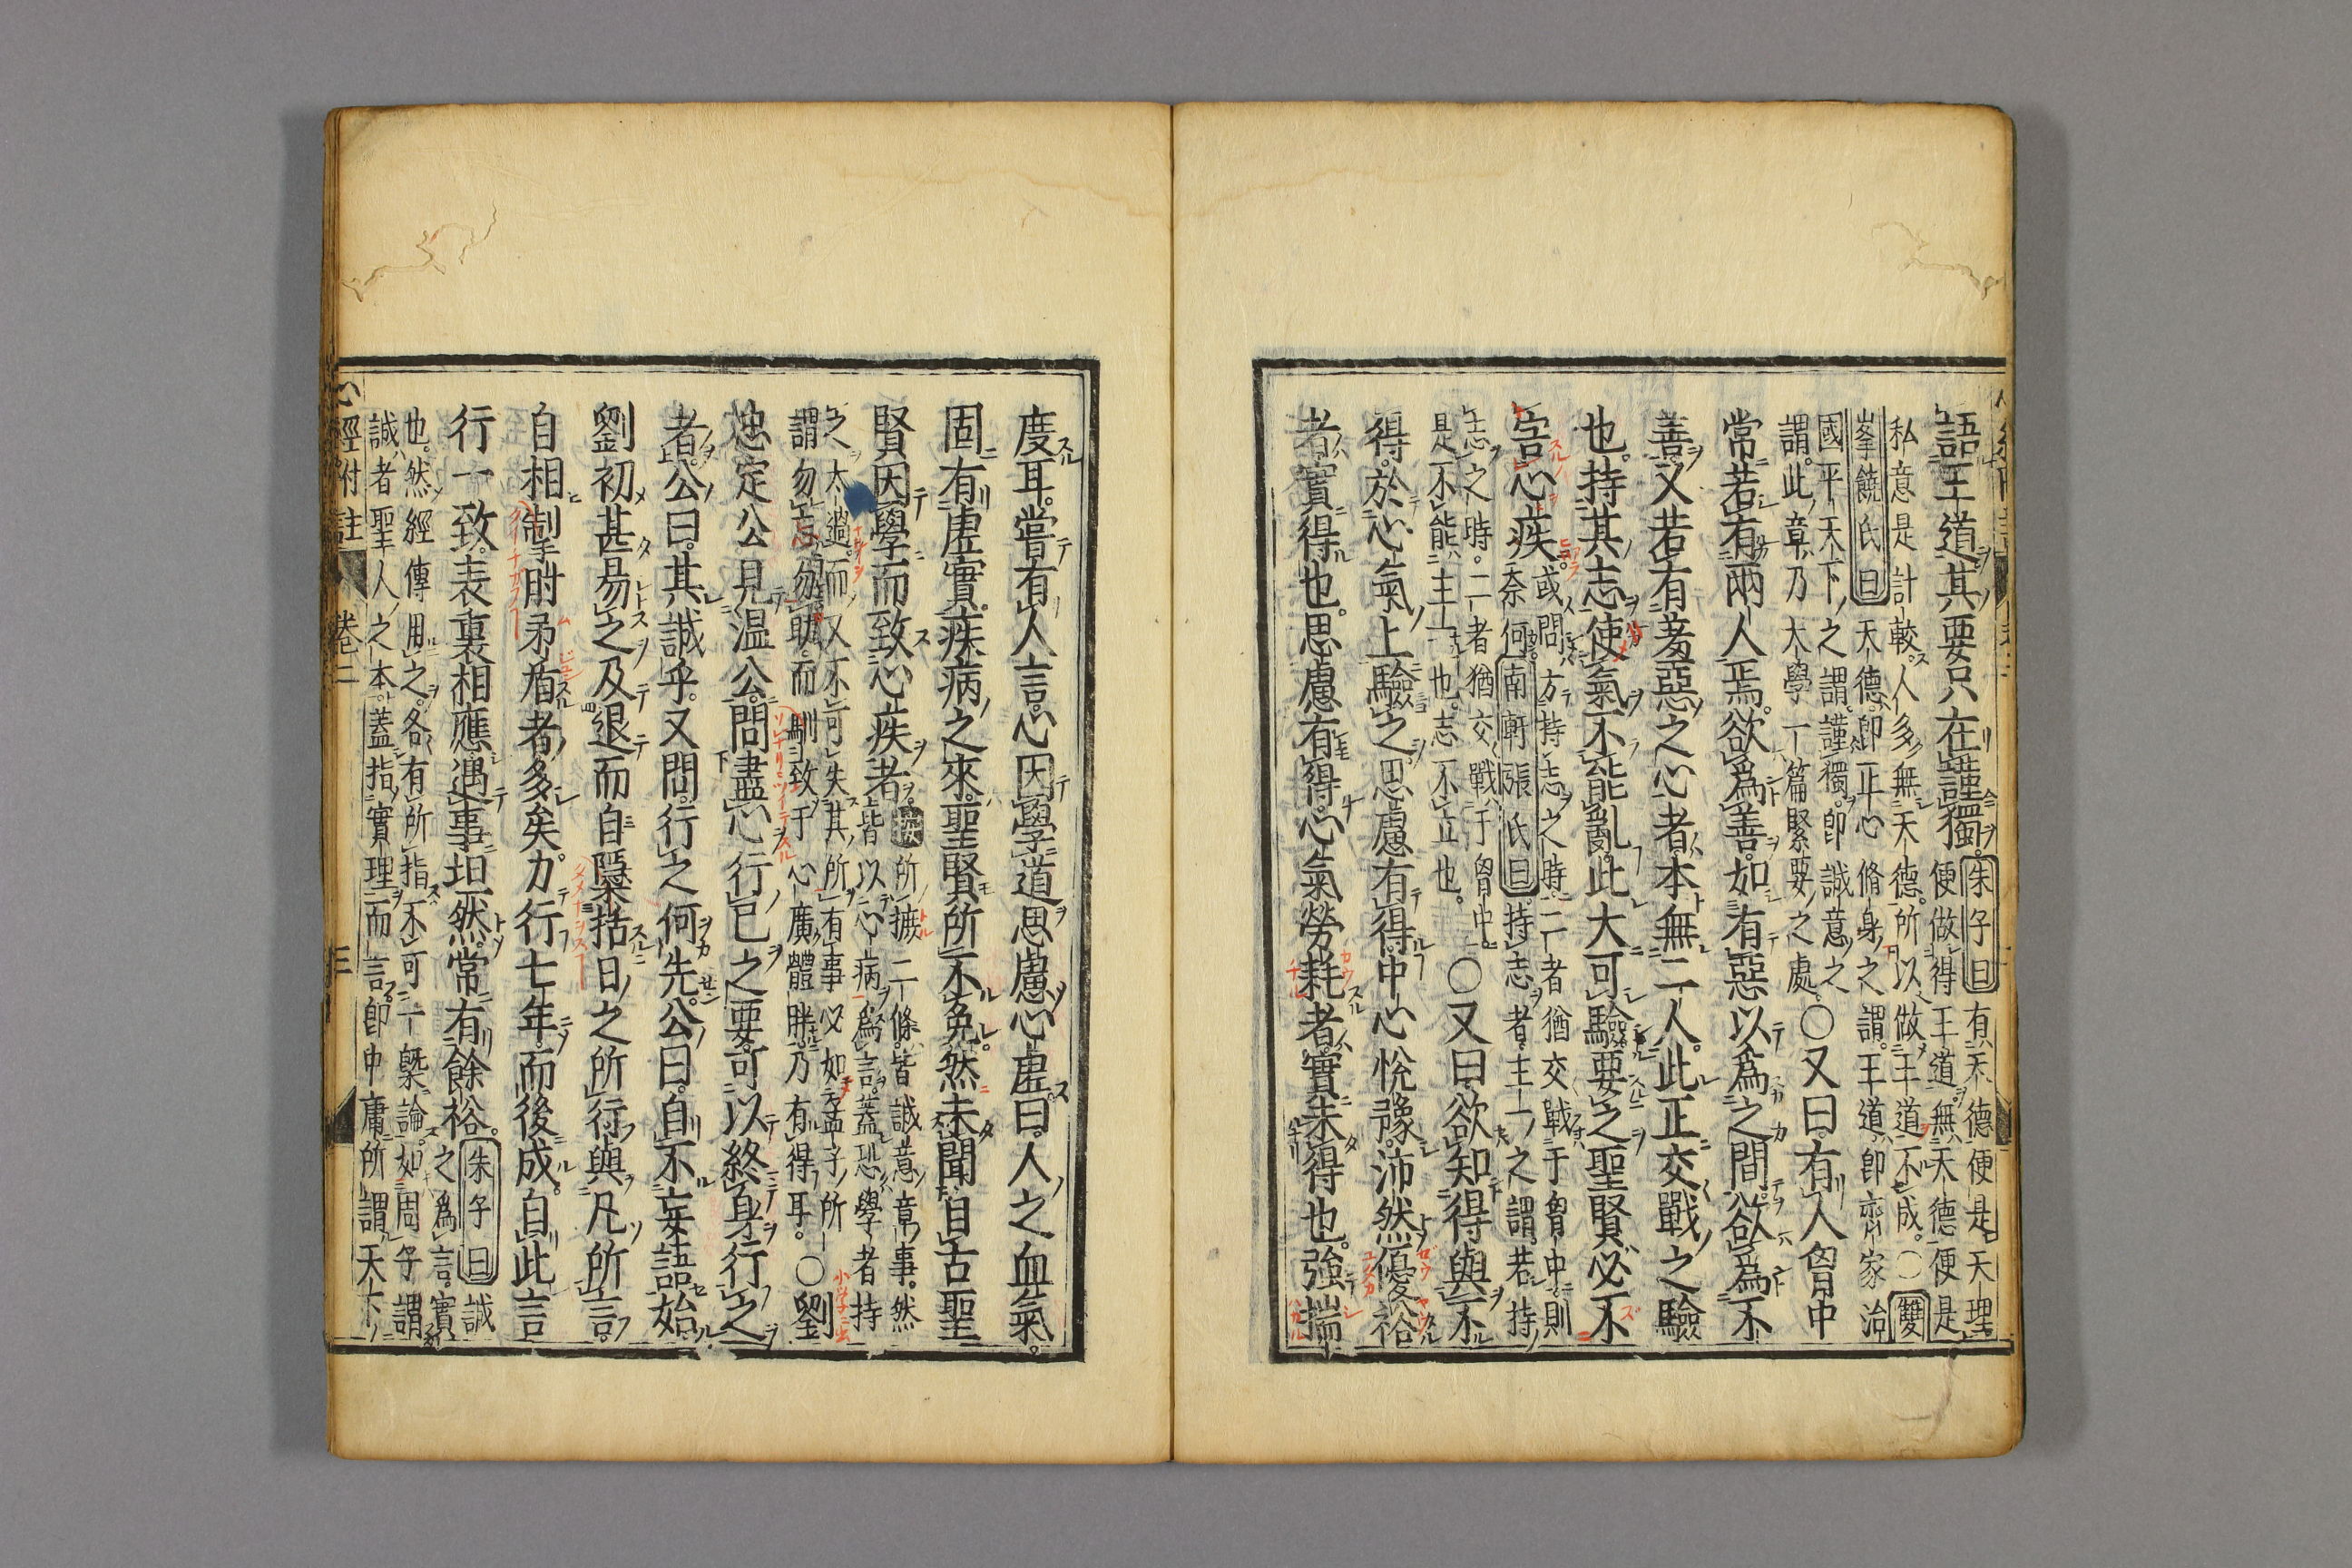 語王道其要只在謹獨。朱子曰有天德便是天理
便做得王道。無天德便是
私意是計較。人多無天德。所以做王道不成。○雙
峯饒氏曰天德即正心脩身之謂。王道即齊家治
國平天下之謂。謹獨。即誠意之
謂。此章乃大學一篇緊要之處。○又曰。有人胷中
常若有兩人焉。欲爲善。如有惡以爲之間。欲爲不
善。又若有羞惡之心者。本無二人。此正交戰之驗
也。持其志使氣不能亂。此大可驗。要之聖賢必不
害心疾。或問方持志之時。二者猶交戰于胷中。則
奈何。南軒張氏曰持志者。主一之謂。若持
志之時。二者猶交戰于胷中。
是不能主一也。志不立也。○又曰。欲知得與不
得。於心氣上驗之。思慮有得。中心悅豫。沛然優裕
者。實得也。思慮有得。心氣勞耗者。實未得也。強揣
度耳。嘗有人言。心因學道思慮心虛。曰。人之血氣。
固有虛實。疾病之來。聖賢所不免。然未聞自古聖
賢因學而致心疾者。按所摭二條。皆誠意章事。然
皆以心病爲言。蓋恐學者持
之太過。而又不可失其所有事。必如孟子所
謂勿忘勿助。而馴致于心廣體胖。乃有得耳。○劉
忠定公見温公。問盡心行已之要。可以終身行之
者。公曰。其誠乎。又問。行之何先。公曰。自不妄語始
劉初甚易之。及退而自隱括日之所行與凡所言。
自相掣肘矛盾者。多矣。力行七年。而後成。自此言
行一致。表裏相應。遇事坦然。常有餘裕。朱子曰誠
之爲言。實
也。然經傳用之。各有所指。不可一槩論。如周子謂
誠者聖人之本。蓋指實理而言。即中庸所謂天下
心經附註 卷二 三